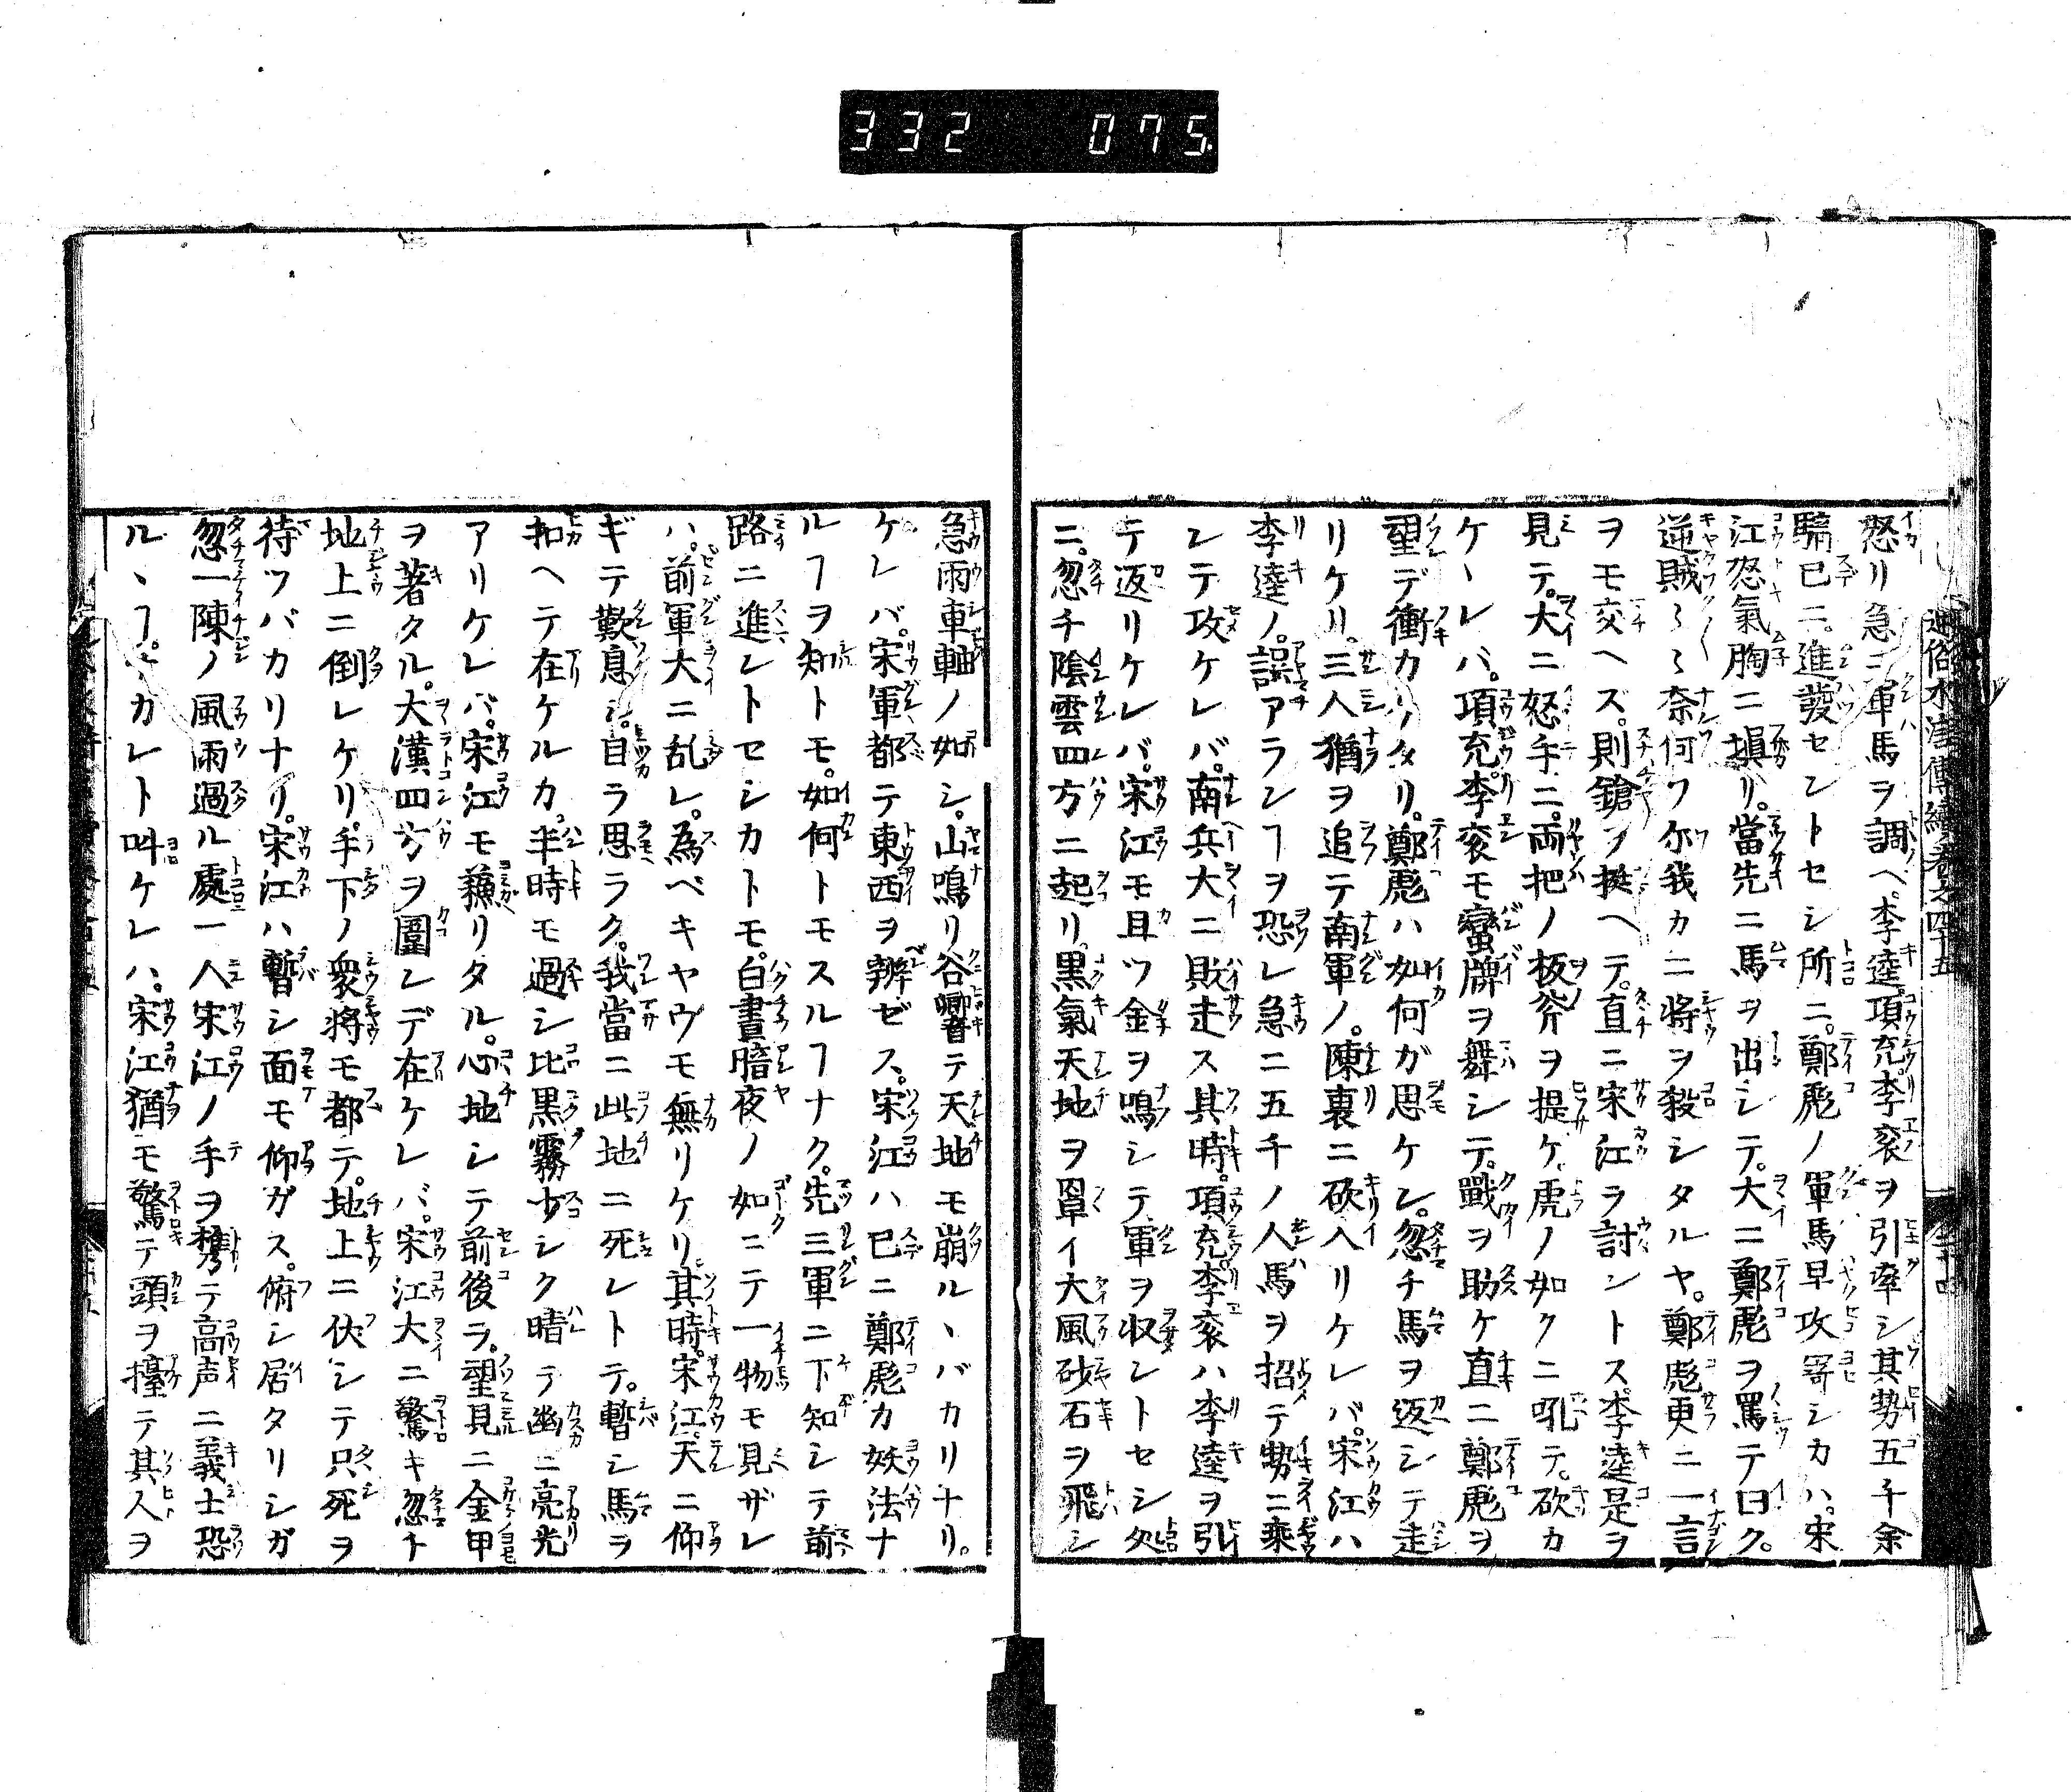 332 075
怒リ急ニ軍馬ヲ調ヘ。李逵項充李袞ヲ引率シ其勢五千余
騎已ニ。進發セントセシ所ニ。鄭彪ノ軍馬早攻寄シカハ。宋
江怒氣胸ニ塡リ。當先ニ馬ヲ出シテ。大ニ鄭彪ヲ罵テ曰ク。
逆賊〻〻奈何ソ尓我カ二將ヲ殺シタルヤ。鄭彪更ニ一言
ヲモ交ヘズ。則鎗ヲ挺ヘテ。直ニ宋江ヲ討ントス。李逵是ヲ
見テ。大ニ怒手ニ。両把ノ板斧ヲ提ケ。虎ノ如クニ吼テ。砍カ
ケヽレバ。項充李袞モ蠻牌ヲ舞シテ。戰ヲ助ケ直ニ鄭彪ヲ
望デ衝カヽタリ。鄭彪ハ如何ガ思ケン。忽チ馬ヲ返シテ走
リケリ。三人猶ヲ追テ南軍ノ。陳裏ニ砍入リケレバ。宋江ハ
李逵ノ。誤アランヿヲ恐レ急ニ五千ノ人馬ヲ招テ勢ニ乘
シテ攻ケレバ。南兵大ニ敗走ス其時。項充。李袞ハ李逵ヲ引
テ返リケレバ。宋江モ且ツ金ヲ鳴シテ軍ヲ収ントセシ処
ニ。忽チ陰雲四方ニ起リ。黒氣天地ヲ罩イ大風砂石ヲ飛シ
急雨車軸ノ如シ。山鳴リ谷響テ天地モ崩ルヽバカリナリ。
ケレバ。宋軍都テ東西ヲ辨ゼス。宋江ハ已ニ鄭彪カ妖法ナ
ルヿヲ知トモ。如何トモスルヿナク。先三軍ニ下知シテ前
路ニ進ントセシカトモ。白晝暗夜ノ如ニテ一物モ見ザレ
ハ。前軍大ニ乱レ。為ベキヤウモ無リケリ。其時。宋江。天ニ仰
ギテ歎息シ。自ラ思ラク。我當ニ此地ニ死レトテ。暫シ馬ヲ
扣ヘテ在ケルカ。半時モ過シ比黒霧少シク晴テ幽ニ亮光
アリケレバ。宋江モ蘓リタル。心地シテ前後ヲ。望見ニ金甲
ヲ著タル。大漢四方ヲ圍ンデ在ケレバ。宋江大ニ驚キ忽チ
地上ニ倒レケリ。手下ノ衆将モ都テ。地上ニ伏シテ只死ヲ
待ツバカリナリ。宋江ハ暫シ面モ仰ガス。俯シ居タリシガ
忽一陳ノ風雨過ル處一人宋江ノ手ヲ携テ高声ニ義士恐
ルヽヿ。ナカレト呌ケレハ。宋江猶モ驚テ頭ヲ擡テ其人ヲ